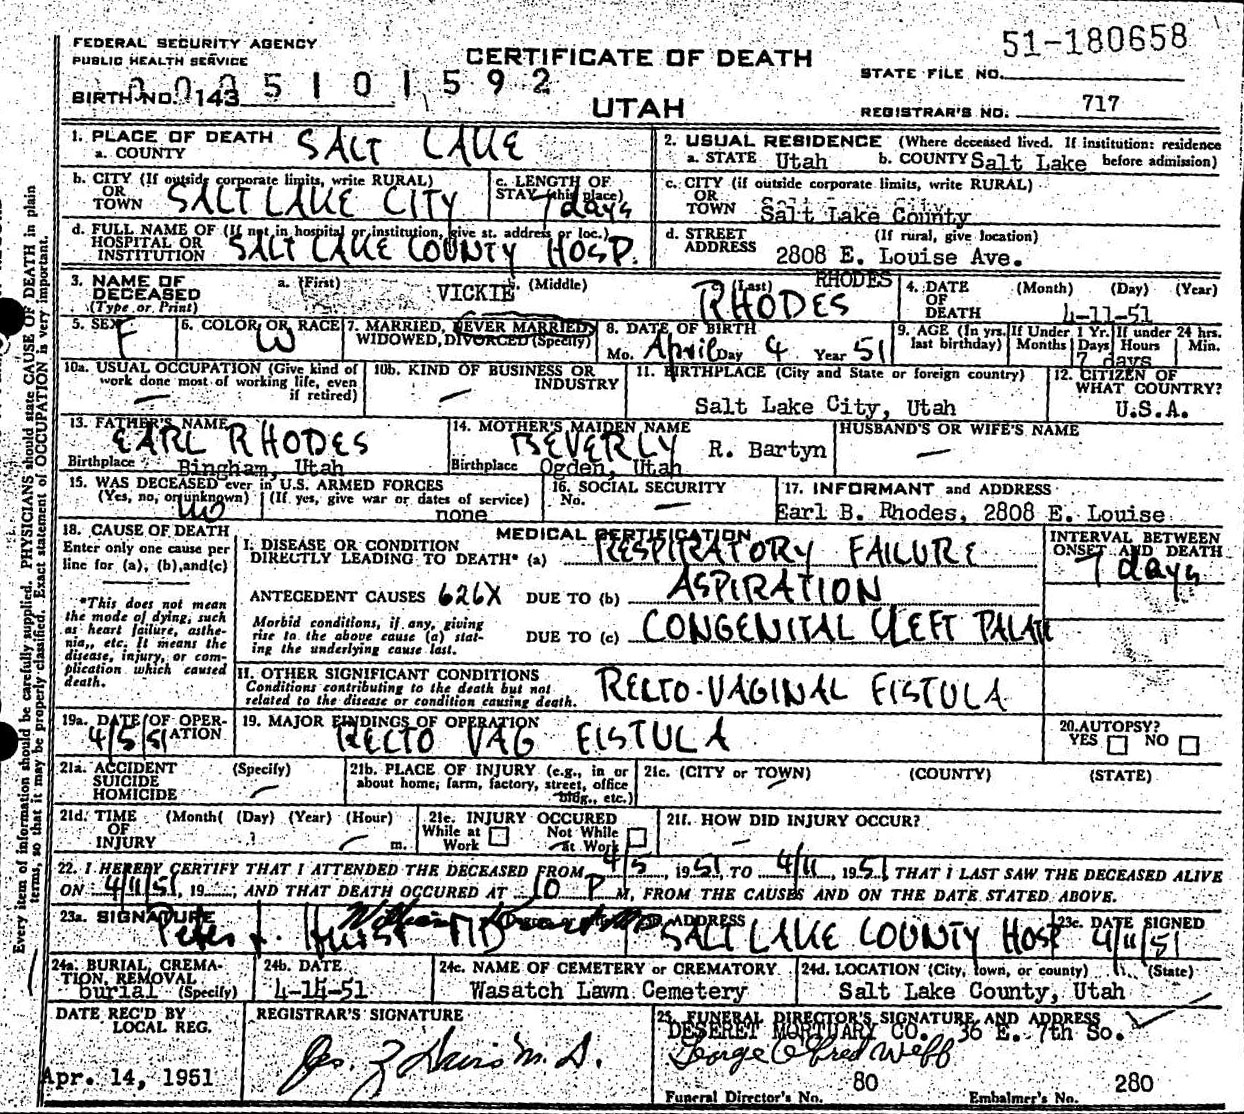 FEDERAL SECURITY AGENCY
PUBLIC HEALTH SERVICE
CERTIFICATE OF DEATH
51-180658
STATE FILE NO.
BIRTH NO. 143
5 1 0 1 5 9 2
UTAH
REGISTRAR'S NO. 717
1. PLACE OF DEATH
a. COUNTY SALT LAKE
2. USUAL RESIDENCE (Where deceased lived. If institution: residence
a. STATE Utah b. COUNTY Salt Lake before admission)
b. CITY (If outside corporate limits, write RURAL)
OR
TOWN SALT LAKE CITY
c. LENGTH OF
STAY (this place)
7 days
c. CITY (if outside corporate limits, write RURAL)
OR
TOWN Salt Lake County
d. FULL NAME OF (If not in hospital or institution, give st. address or loc.)
HOSPITAL OR
INSTITUTION SALT LAKE COUNTY HOSP.
d. STREET (If rural, give location)
ADDRESS 2808 E. Louise Ave.
3. NAME OF
DECEASED
(Type or Print)
a. (First) (Middle) (Last)
VICKIE RHODES
RHODES
4. DATE (Month) (Day) (Year)
OF
DEATH 4-11-51
5. SEX F
6. COLOR OR RACE W
7. MARRIED, NEVER MARRIED,
WIDOWED, DIVORCED (Specify)
8. DATE OF BIRTH
Mo. April Day 4 Year 51
9. AGE (In yrs. last birthday)
If Under 1 Yr. Months Days
If under 24 hrs. Hours Min.
7 days
10a. USUAL OCCUPATION (Give kind of
work done most of working life, even
if retired) —
10b. KIND OF BUSINESS OR
INDUSTRY —
11. BIRTHPLACE (City and State or foreign country)
Salt Lake City, Utah
12. CITIZEN OF
WHAT COUNTRY?
U.S.A.
13. FATHER'S NAME
EARL RHODES
Birthplace Bingham, Utah
14. MOTHER'S MAIDEN NAME
BEVERLY R. Bartyn
Birthplace Ogden, Utah
HUSBAND'S OR WIFE'S NAME
—
15. WAS DECEASED ever in U.S. ARMED FORCES
(Yes, no, or unknown) (If yes, give war or dates of service)
no none
16. SOCIAL SECURITY
No. —
17. INFORMANT and ADDRESS
Earl B. Rhodes, 2808 E. Louise
18. CAUSE OF DEATH
Enter only one cause per
line for (a), (b), and (c)
*This does not mean
the mode of dying, such
as heart failure, asthe-
nia,, etc. It means the
disease, injury, or com-
plication which caused
death.
MEDICAL CERTIFICATION
I. DISEASE OR CONDITION
DIRECTLY LEADING TO DEATH* (a) RESPIRATORY FAILURE
ANTECEDENT CAUSES 626X DUE TO (b) ASPIRATION
Morbid conditions, if any, giving
rise to the above cause (a) stat-
ing the underlying cause last.
DUE TO (c) CONGENITAL CLEFT PALATE
INTERVAL BETWEEN
ONSET AND DEATH
7 days
II. OTHER SIGNIFICANT CONDITIONS
Conditions contributing to the death but not
related to the disease or condition causing death.
RECTO-VAGINAL FISTULA
19a. DATE OF OPER-
ATION
4/5/51
19. MAJOR FINDINGS OF OPERATION
RECTO VAG FISTULA
20. AUTOPSY?
YES NO
21a. ACCIDENT (Specify)
SUICIDE
HOMICIDE —
21b. PLACE OF INJURY (e.g., in or
about home, farm, factory, street, office
bldg., etc.)
21c. (CITY or TOWN) (COUNTY) (STATE)
21d. TIME (Month( (Day) (Year) (Hour)
OF
INJURY m.
21e. INJURY OCCURED
While at Work
Not While at Work
21f. HOW DID INJURY OCCUR?
—
22. I HEREBY CERTIFY THAT I ATTENDED THE DECEASED FROM 4/5, 1951, TO 4/11, 1951 THAT I LAST SAW THE DECEASED ALIVE
ON 4/11/51, 19, AND THAT DEATH OCCURED AT 10 P M, FROM THE CAUSES AND ON THE DATE STATED ABOVE.
23a. SIGNATURE
Peter MD
ADDRESS
SALT LAKE COUNTY HOSP
23c. DATE SIGNED
4/11/51
24a. BURIAL, CREMA-
TION, REMOVAL
burial (Specify)
24b. DATE
4-14-51
24c. NAME OF CEMETERY or CREMATORY
Wasatch Lawn Cemetery
24d. LOCATION (City, town, or county) (State)
Salt Lake County, Utah
DATE REC'D BY
LOCAL REG.
Apr. 14, 1951
REGISTRAR'S SIGNATURE
25. FUNERAL DIRECTOR'S SIGNATURE AND ADDRESS
DESERET MORTUARY CO. 36 E. 7th So.
80 280
Funeral Director's No. Embalmer's No.
Every item of information should be carefully supplied. PHYSICIANS should state CAUSE OF DEATH in plain
terms, so that it may be properly classified. Exact statement of OCCUPATION is very important.